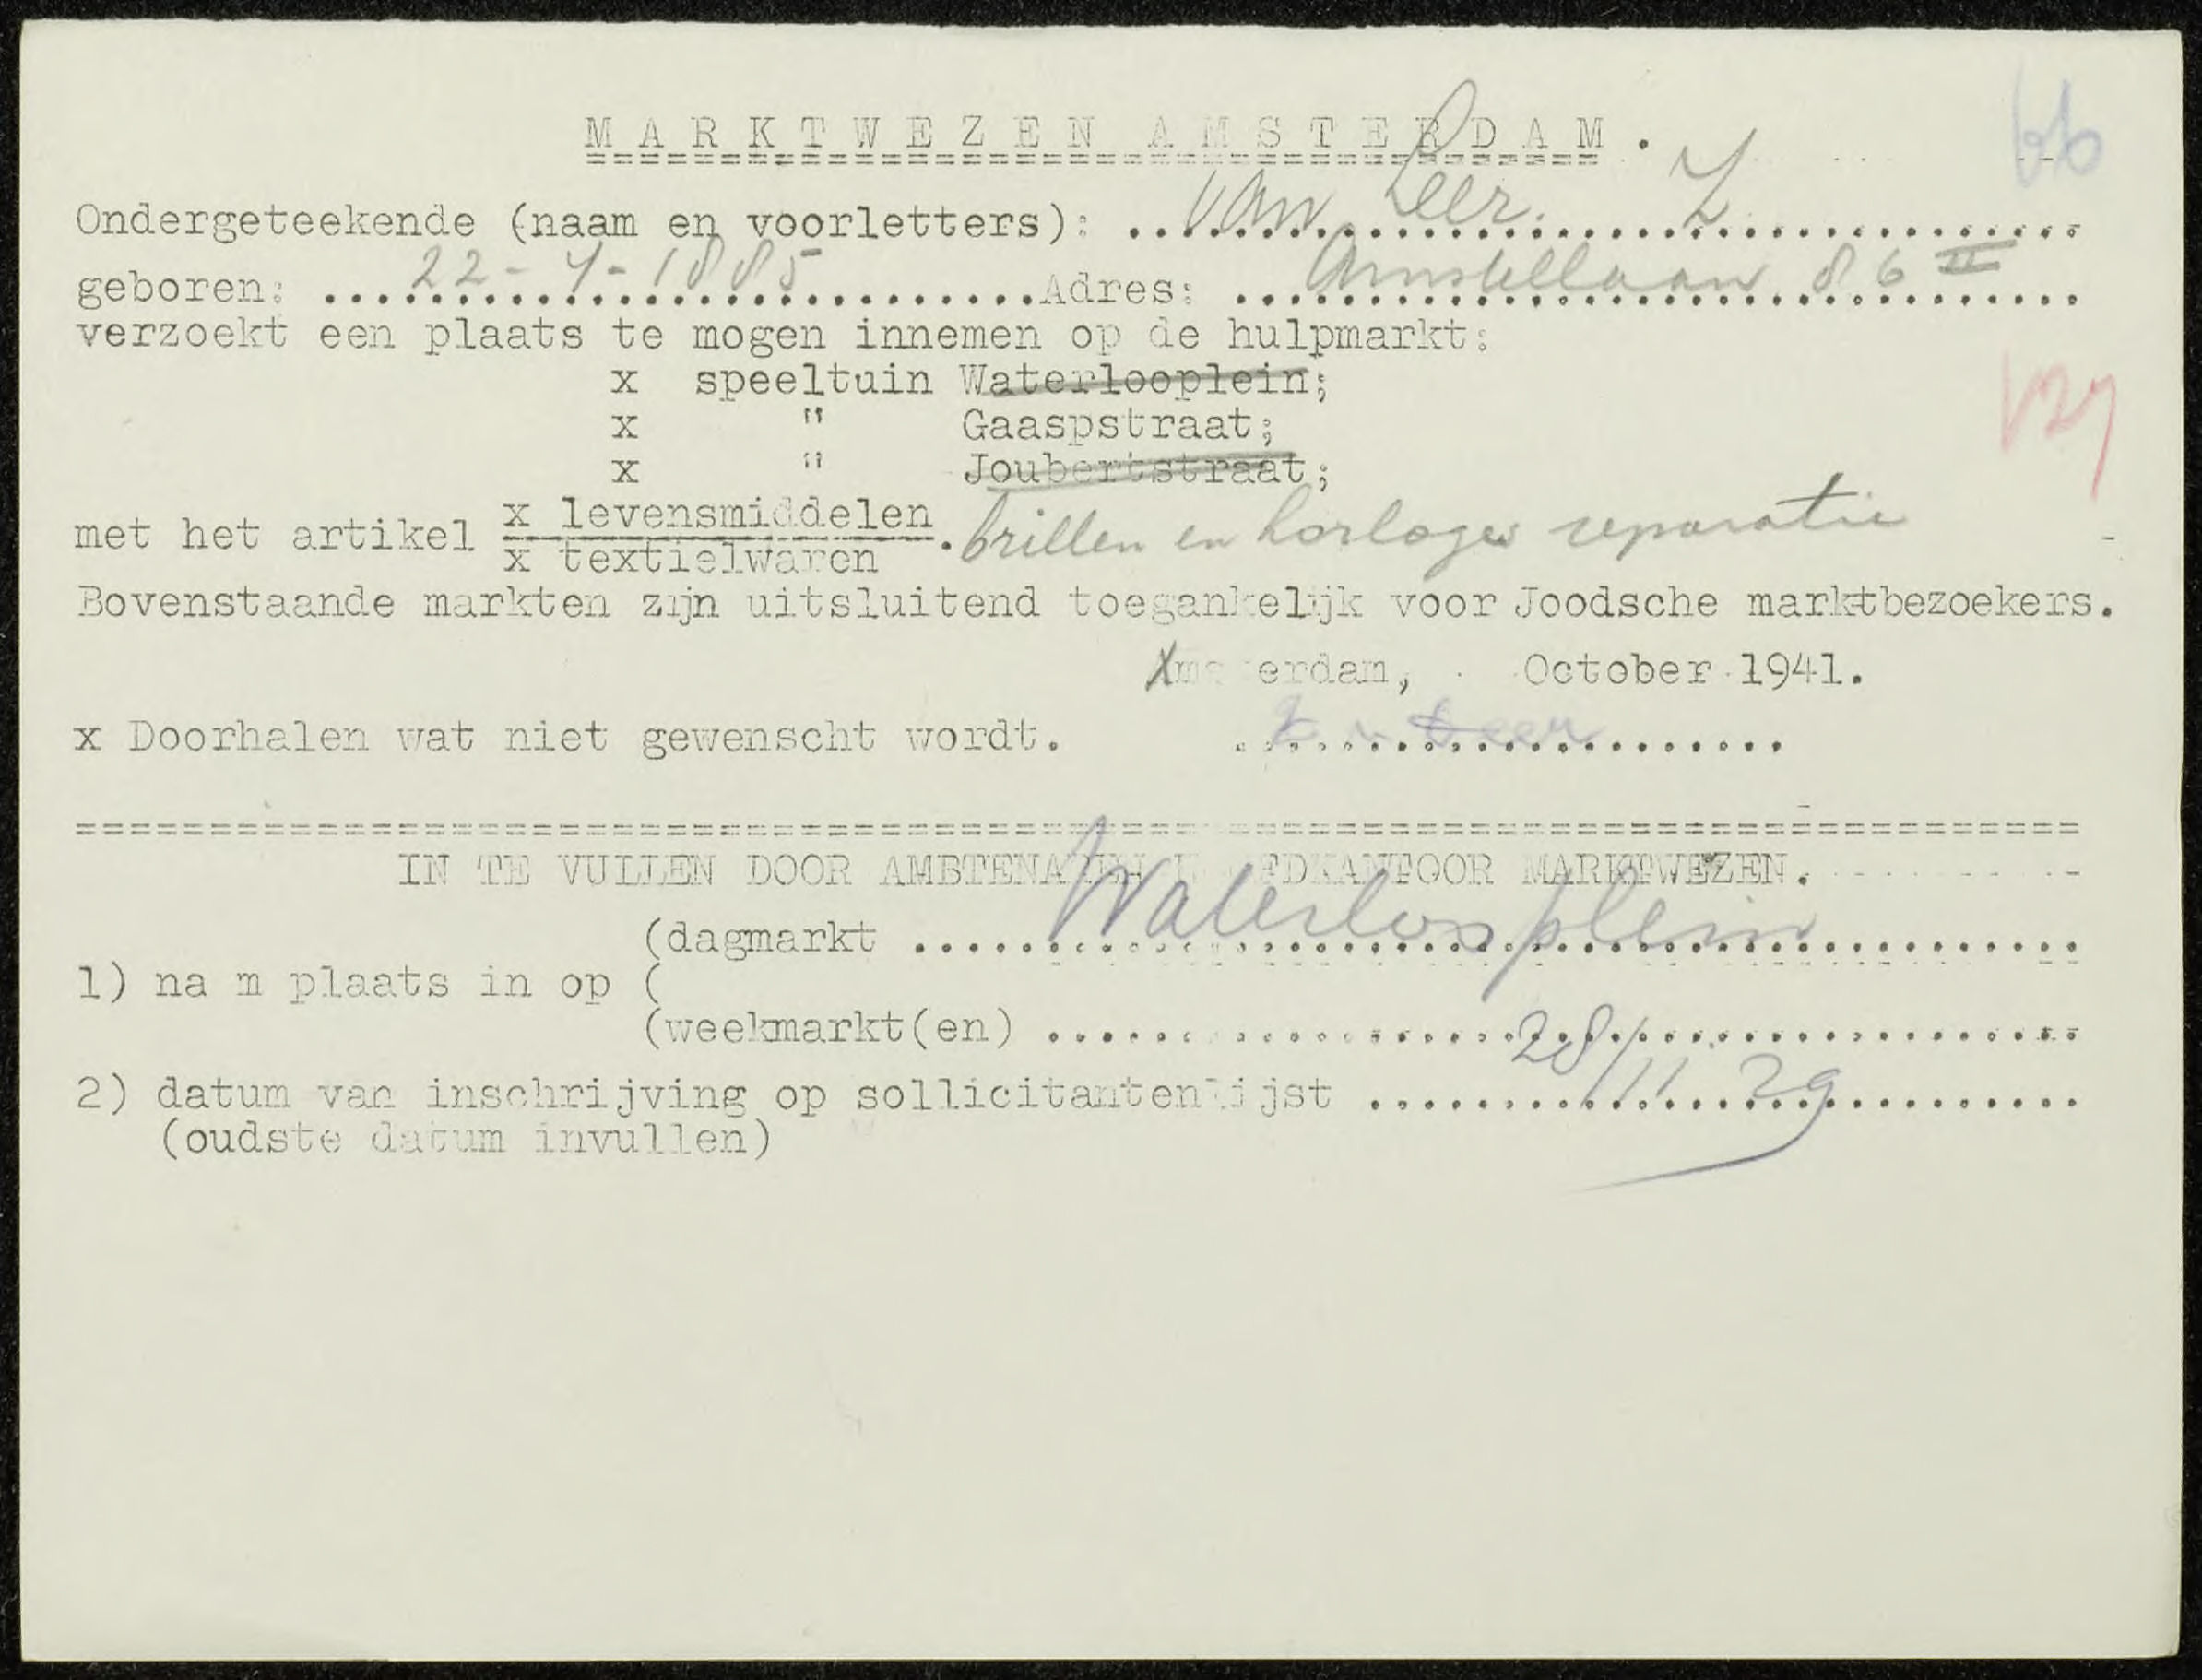 MARKTWEZEN AMSTERDAM.
bb
Ondergeteekende (naam en voorletters): van Leer. Z
geboren: 22-4-1885 Adres: Amstellaan 86 II
verzoekt een plaats te mogen innemen op de hulpmarkt:
x speeltuin Waterlooplein;
x " Gaaspstraat;
x " Joubertstraat;
met het artikel x levensmiddelen
x textielwaren . brillen en horloges reparatie
Bovenstaande markten zijn uitsluitend toegankelijk voor Joodsche marktbezoekers.
Amsterdam, October 1941.
x Doorhalen wat niet gewenscht wordt. Z v Leer
IN TE VULLEN DOOR AMBTENAREN HOOFDKANTOOR MARKTWEZEN.
(dagmarkt Waterlooplein
1) na m plaats in op (
(weekmarkt(en)
2) datum van inschrijving op sollicitantenlijst 28/11 29
(oudste datum invullen)